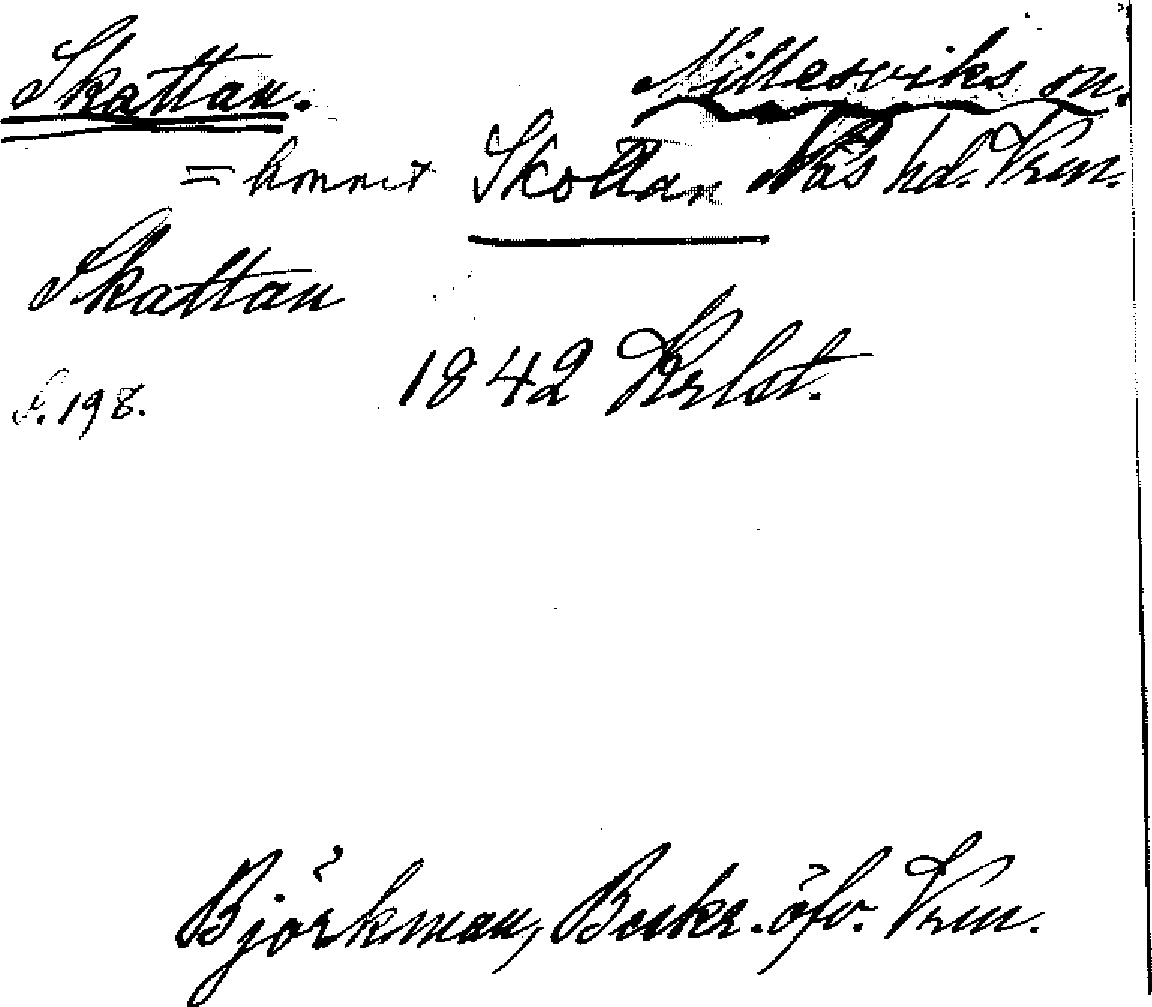 Skattan. Millesviks sn.
= hmnet Skottan Näs hd. Vrm.
Skattan
1842 Krlst.
S. 198.
Björkman, Beskr. öfv. Vrm.